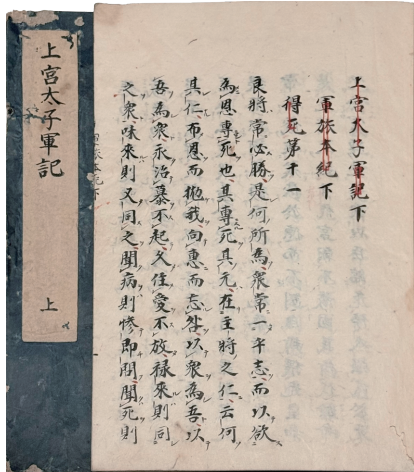 上宮太子軍記
上
上宮太子軍記下
軍旅本紀下
得死第十一
良將常必勝是何所為衆常一平志而以欲
為恩專死也其專死其元在主將之仁云何
其仁布恩而拋我向惠而忘咎以衆為吾以
吾為衆永治暴不起久住愛不放禄來則同
之衆味來則又同之聞病則慘即問聞死則